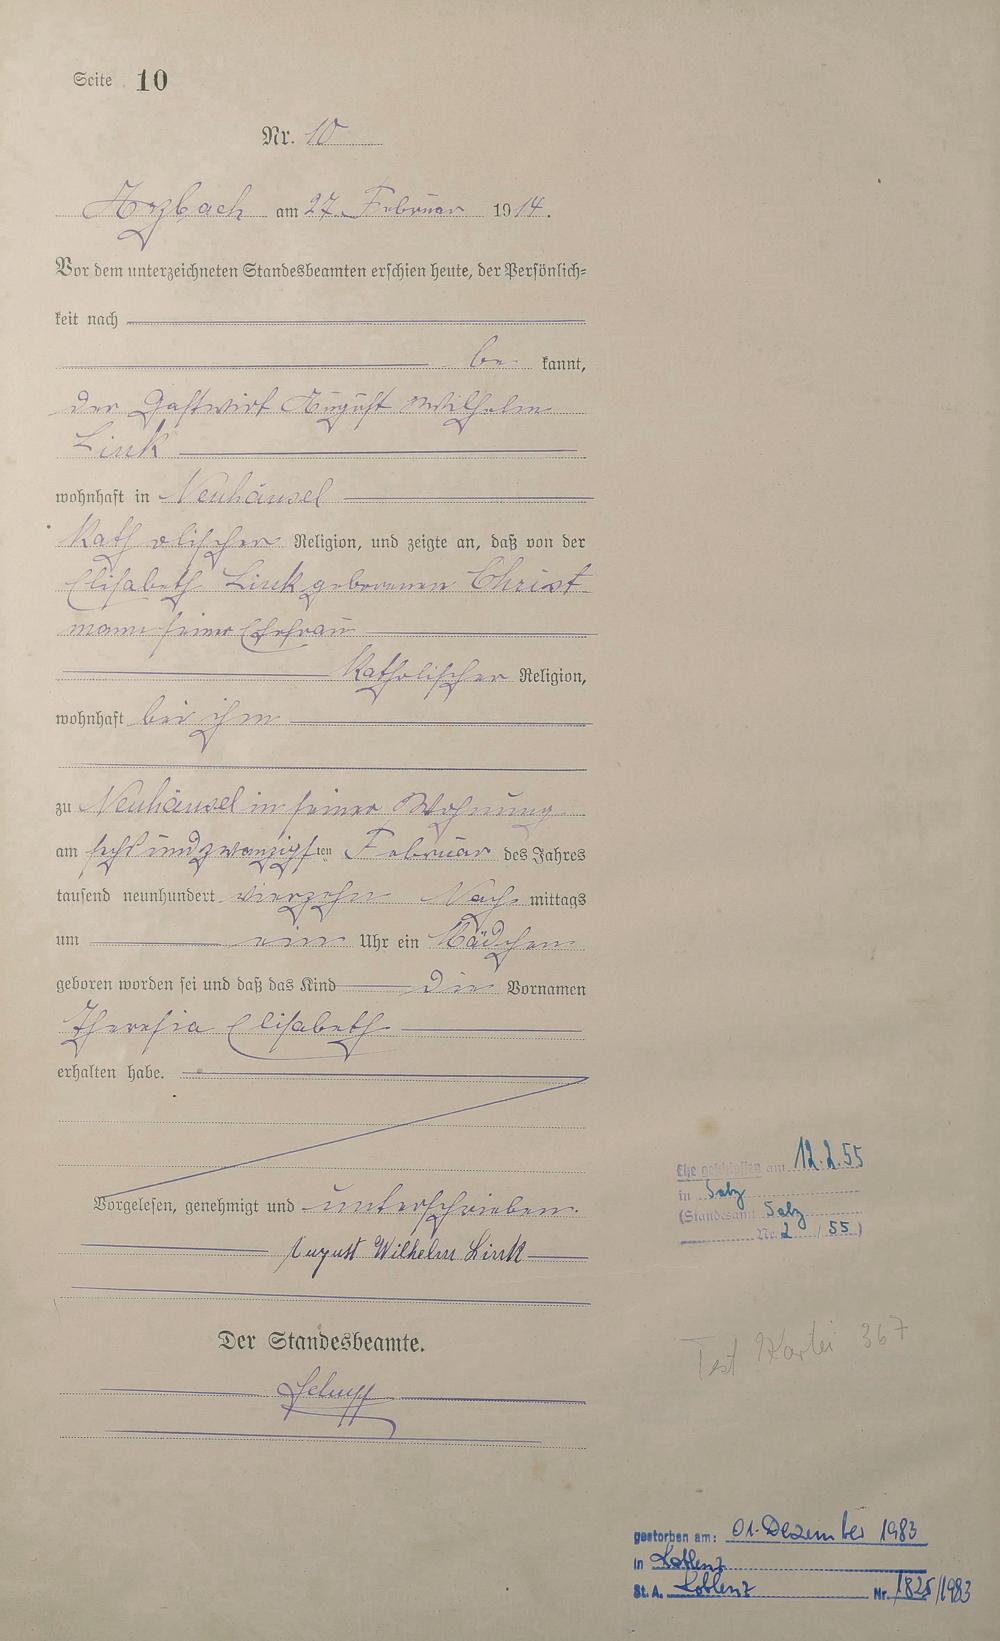 Seite 10
Nr. 10
Arzbach am 27 Februar 1914.
Vor dem unterzeichneten Standesbeamten erschien heute, der Persönlich-
keit nach
be kannt,
der Gastwirt August Wilhelm
Link
wohnhaft in Neuhäusel
Katholischer Religion, und zeigte an, daß von der
Elisabeth Link geborenen Christ
mann seiner Ehefrau
Katholischer Religion,
wohnhaft bei ihm
zu Neuhäusel in seiner Wohnung
am sechsundzwanzigsten Februar des Jahres
tausend neunhundert vierzehn Nach mittags
um ein Uhr ein Mädchen
geboren worden sei und daß das Kind die Vornamen
Theresia Elisabeth
erhalten habe.
Vorgelesen, genehmigt und unterschrieben.
August Wilhelm Link
Der Standesbeamte.
Ehe geschlossen am 12.2.55
in Salz
(Standesamt Salz
Nr. 2 / 55)
Test Kartei 367
gestorben am: 01. Dezember 1983
in Koblenz
St. A. Koblenz Nr. 1825/1983